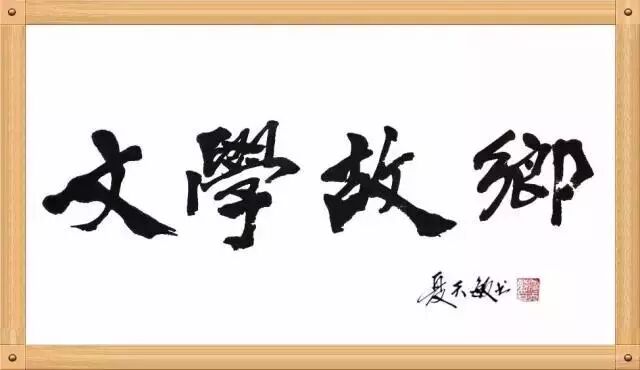 文學故鄉
夏天敏书